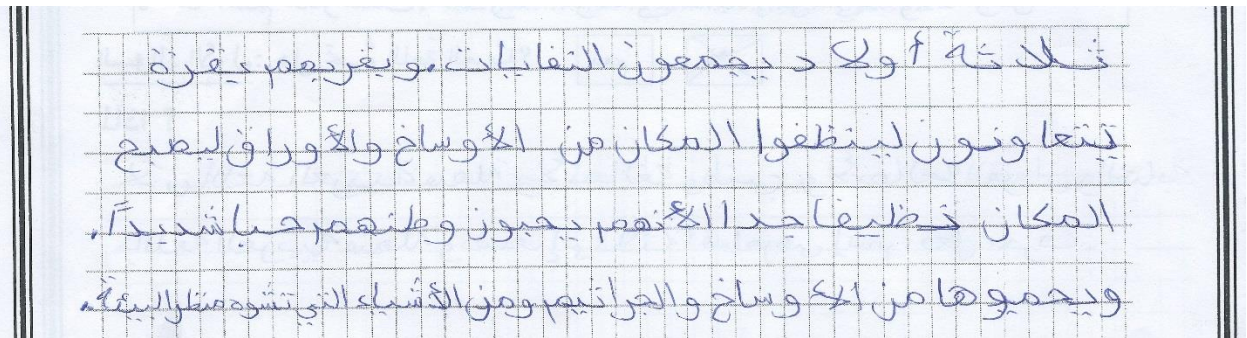 ثلاثة أولاد يجمعون النفايات. وبقربهم بقرة
يتعاونون لينظفوا المكان من الأوساخ والأوراق ليصبح
المكان نظيفا جدا لأنهم يحبون وطنهم حبا شديداً.
ويحموها من الأوساخ والجراثيم ومن الأشياء التي تشوه منظر البيئة.